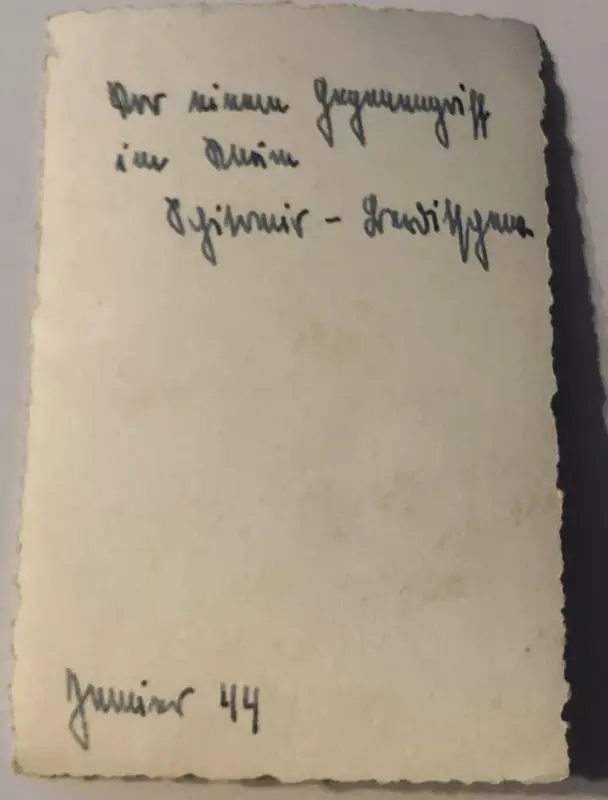 Vor einem Gegenangriff
im Raum
Schitomir - Berditschew
Januar 44